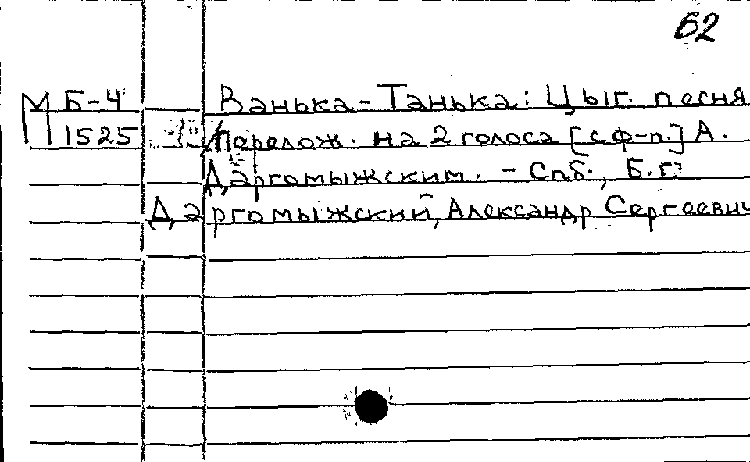 62
М Б-4 Ванька-Танька: Цыг. песня
1525 /перелож. на 2 голоса [с ф-п.] А.
Даргомыжским. - Спб., Б.г.
Даргомыжский, Александр Сергеевич